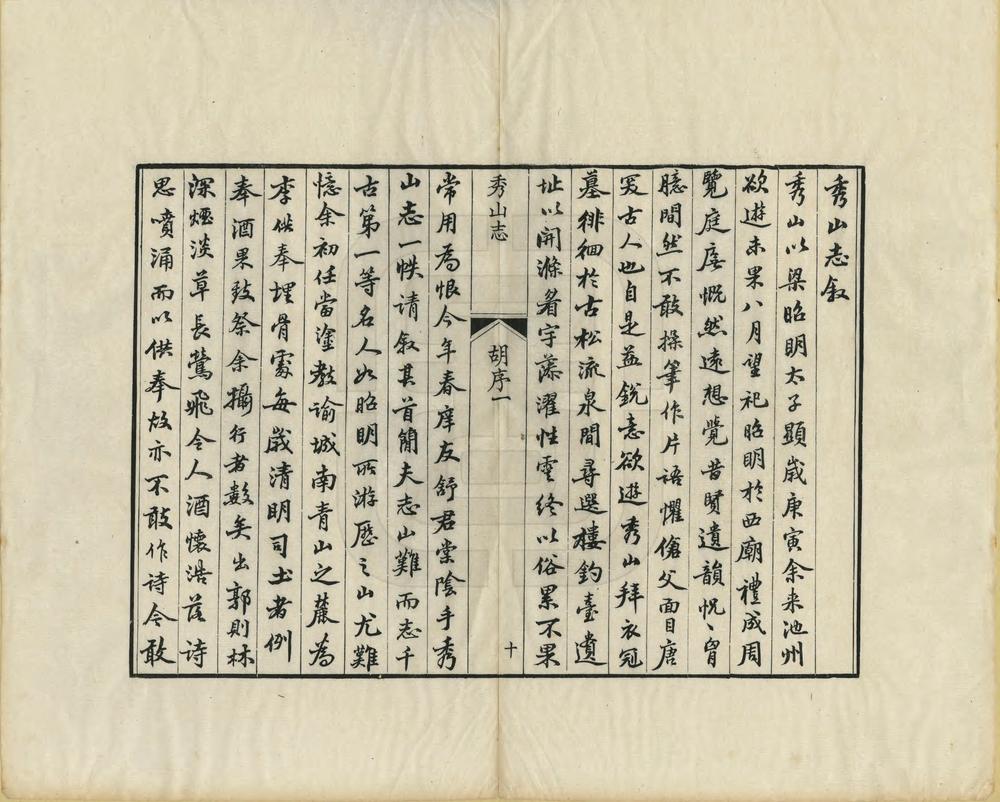 秀山志叙
秀山以梁昭明太子顯歲庚寅余来池州
欲遊未果八月望祀昭明於西廟禮成周
覽庭廡慨然遠想覺昔賢遺韻怳〻胷
臆間然不敢操筆作片語懼傖父面目唐
突古人也自是益銳意欲遊秀山拜衣冠
墓徘徊於古松流泉間尋選樓釣臺遺
址以開滌眉宇藻濯性霊終以俗累不果
秀山志
胡序一
十
常用為恨今年春庠友舒君棠陰手秀
山志一帙請叙其首簡夫志山難而志千
古第一等名人如昭明所游歷之山尤難
憶余初任當塗教諭城南青山之麓為
李供奉埋骨處每歲清明司土者例
奉酒果致祭余攝行者數矣出郭則林
深烟淡草長鶯飛令人酒懷浩落詩
思噴涌而以供奉故亦不敢作詩令敢